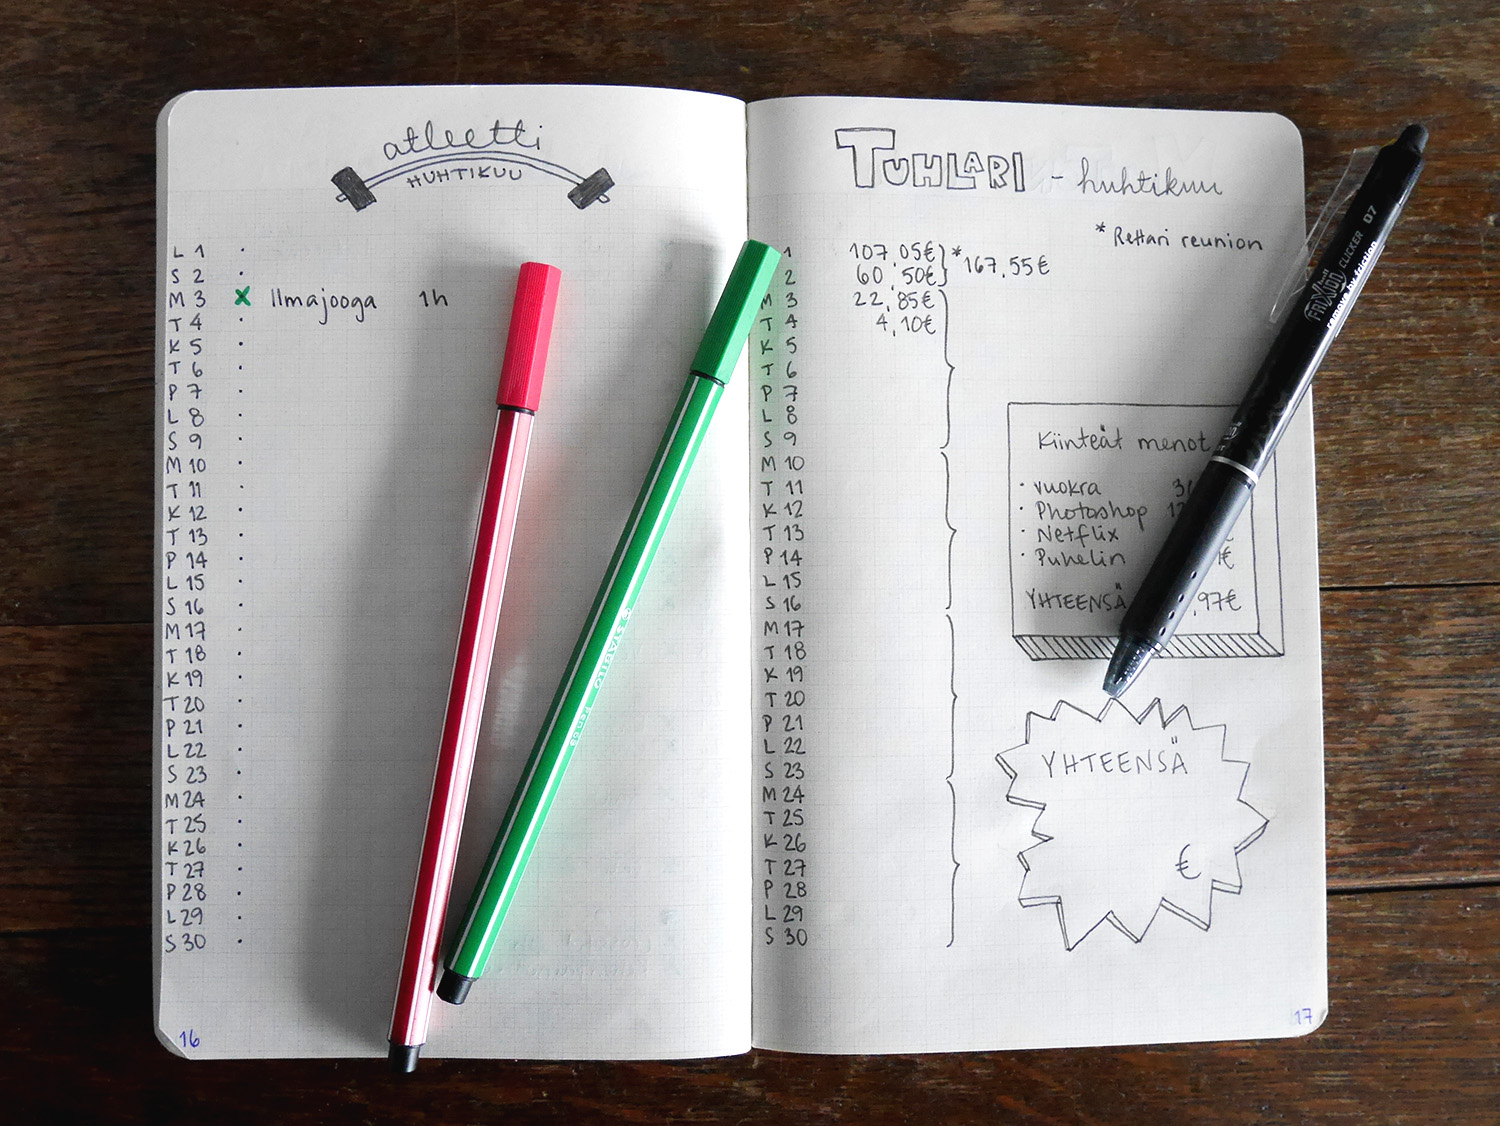 atleetti
HUHTIKUU
L 1
S 2
M 3 x Ilmajooga 1h
T 4
K 5
T 6
P 7
L 8
S 9
M 10
T 11
K 12
T 13
P 14
L 15
S 16
M 17
T 18
K 19
T 20
P 21
L 22
S 23
M 24
T 25
K 26
T 27
P 28
L 29
S 30
16
TUHLARI - huhtikuu
* Rettari reunion
1 107,05€
2 60,50€ * 167,55€
M 3 22,85€
T 4 4,10€
K 5
T 6
P 7
L 8
S 9
M 10
T 11
K 12
T 13
P 14
L 15
S 16
M 17
T 18
K 19
T 20
P 21
L 22
S 23
M 24
T 25
K 26
T 27
P 28
L 29
S 30
Kiinteät menot
· vuokra
· Photoshop
· Netflix
· Puhelin
YHTEENSÄ ,97€
YHTEENSÄ
€
17
STABILO
Pen 68
FRIXION CLICKER 07
remove by friction